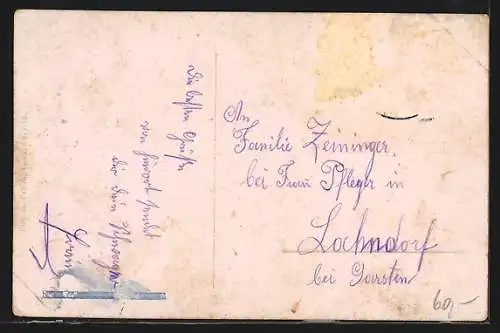 Die besten Grüße
von hirort sendet
dir dein Schwager
An
Familie Zeininger
bei Frau Pfleger in
Lahndorf
bei Garsten
60,-